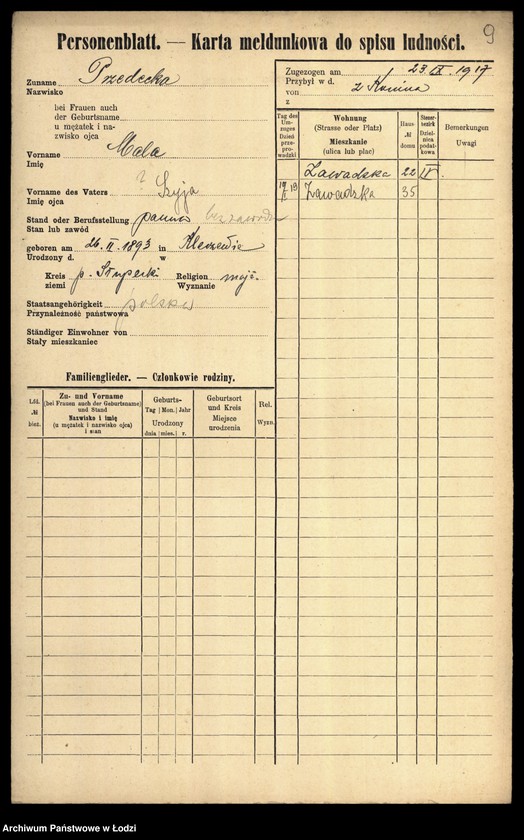 9
Personenblatt. — Karta meldunkowa do spisu ludności.
Zuname Przedecka
Nazwisko
bei Frauen auch
der Geburtsname
u mężatek i na-
zwisko ojca
Vorname Mala
Imię
?
Vorname des Vaters Szyja
Imię ojca
Stand oder Berufsstellung panna bez zawodu
Stan lub zawód
geboren am 26.II.1893 in Kleczewie
Urodzony d. w
Kreis p. Słupecki Religion mojż.
ziemi Wyznanie
Staatsangehörigkeit polska
Przynależność państwowa
Ständiger Einwohner von
Stały mieszkaniec
Familienglieder. — Członkowie rodziny.
Lfd. № bież.
Zu- und Vorname
(bei Frauen auch der Geburtsname)
und Stand
Nazwisko i imię
(u mężatek i nazwisko ojca)
i stan
Geburts-
Tag Mon. Jahr
Urodzony
dnia mies. r.
Geburtsort
und Kreis
Miejsce
urodzenia
Rel.
Wyzn.
Zugezogen am 23.IX.1917
Przybył w d.
von z Konina
z
Tag des
Um-
zuges
Dzień
prze-
prowadzki
Wohnung
(Strasse oder Platz)
Mieszkanie
(ulica lub plac)
Haus-
№
domu
Steuer-
bezirk
Dziel-
nica
podat-
kowa
Bemerkungen
Uwagi
Zawadzka 22 II
Zawadzka 35
Archiwum Państwowe w Łodzi